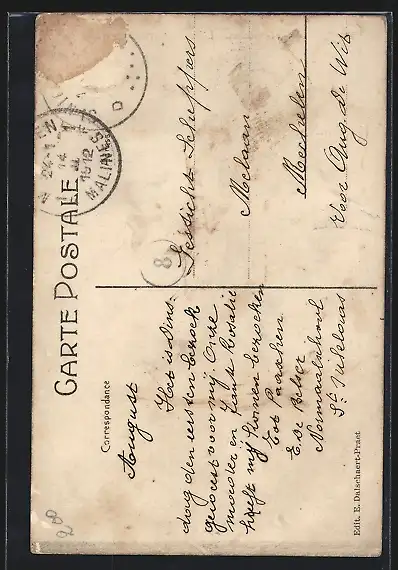 CARTE POSTALE
Correspondance
August
Het is dins-
dag den eersten bezoek
geweest voor mij. Onze
moeder en Tante Rosalie
heeft mij komen bezoeken
Tot Paaschen.
E. De Belser
Normaalschool
St. Nikolaas
Gesticht Scheppers
Melaan
Mechelen
Voor Aug. de Wit
1912
MALINES
8
Edit. E. Dalschaert-Praet